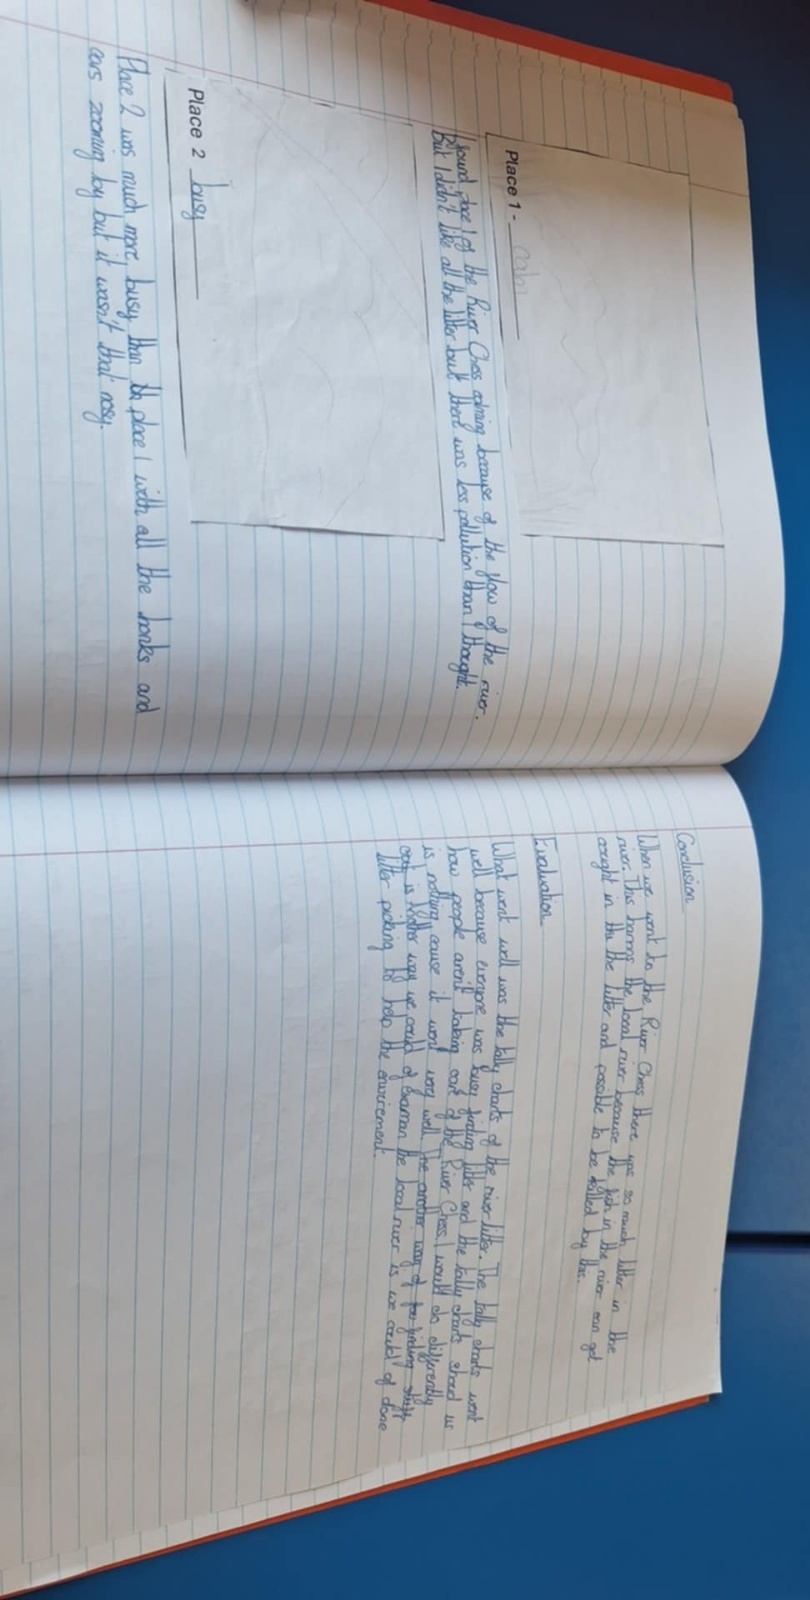 Place 1 - calm
I found place 1 of the River Chess calming because of the flow of the river.
But I didn't like all the litter but there was less pollution than I thought.
Place 2 busy
Place 2 was much more busy than place 1 with all the honks and
cars zooming by but it wasn't that nosy.
Conclusion
When we went to the River Chess there was so much litter in the
river. This harms the local river because the fish in the river can get
caught in the litter and possible to be killed by this.
Evaluation
What went well was the tally charts of the river litter. The tally charts went
well because everyone was busy finding litter and the tally charts showd us
how people aren't taking care of the River Chess. I would do differently
is nothing cause it went very well. The another way of finding stuff
is Another way we could of the local river is we could of done
litter picking to help the envirement.